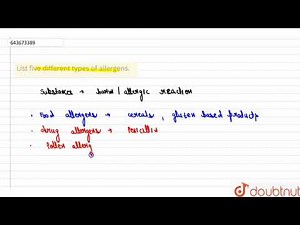 643673389
List five different types of allergens.
Substances → harm / allergic reaction
• Food allergers → cereals, gluten based products
• drug allergers → Penicillin
• Pollen allerg
doubtnut